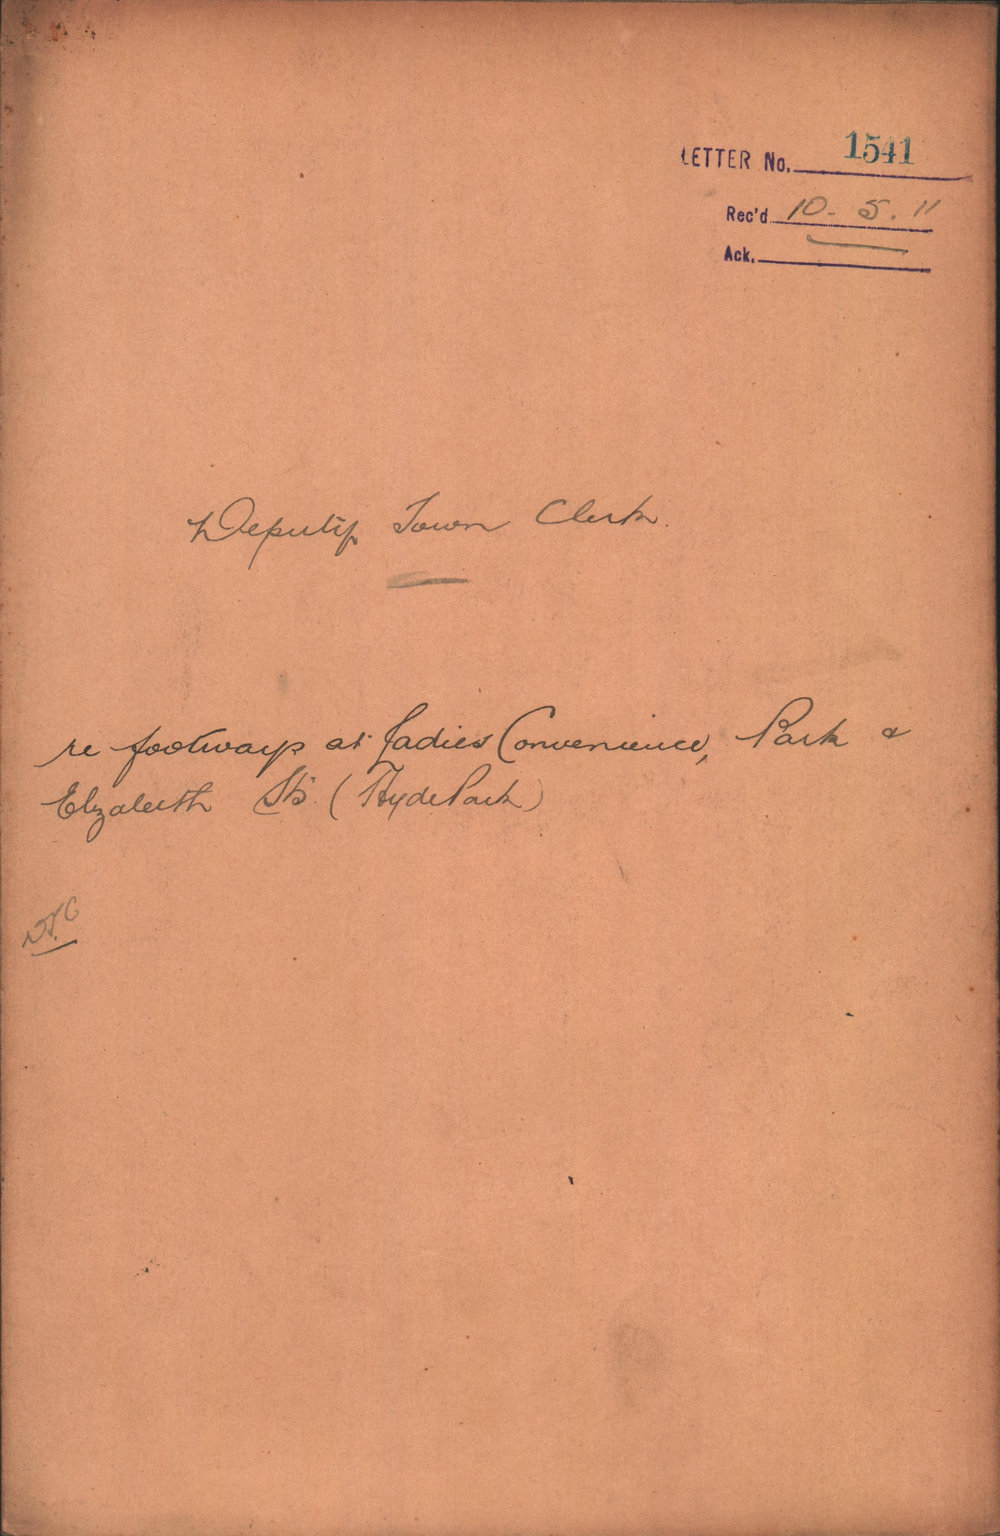 LETTER No. 1541
Rec'd 10. 5. 11
Ack.
Deputy Town Clerk.
re footways at Ladies Convenience, Park &
Elizabeth Sts. (Hyde Park)